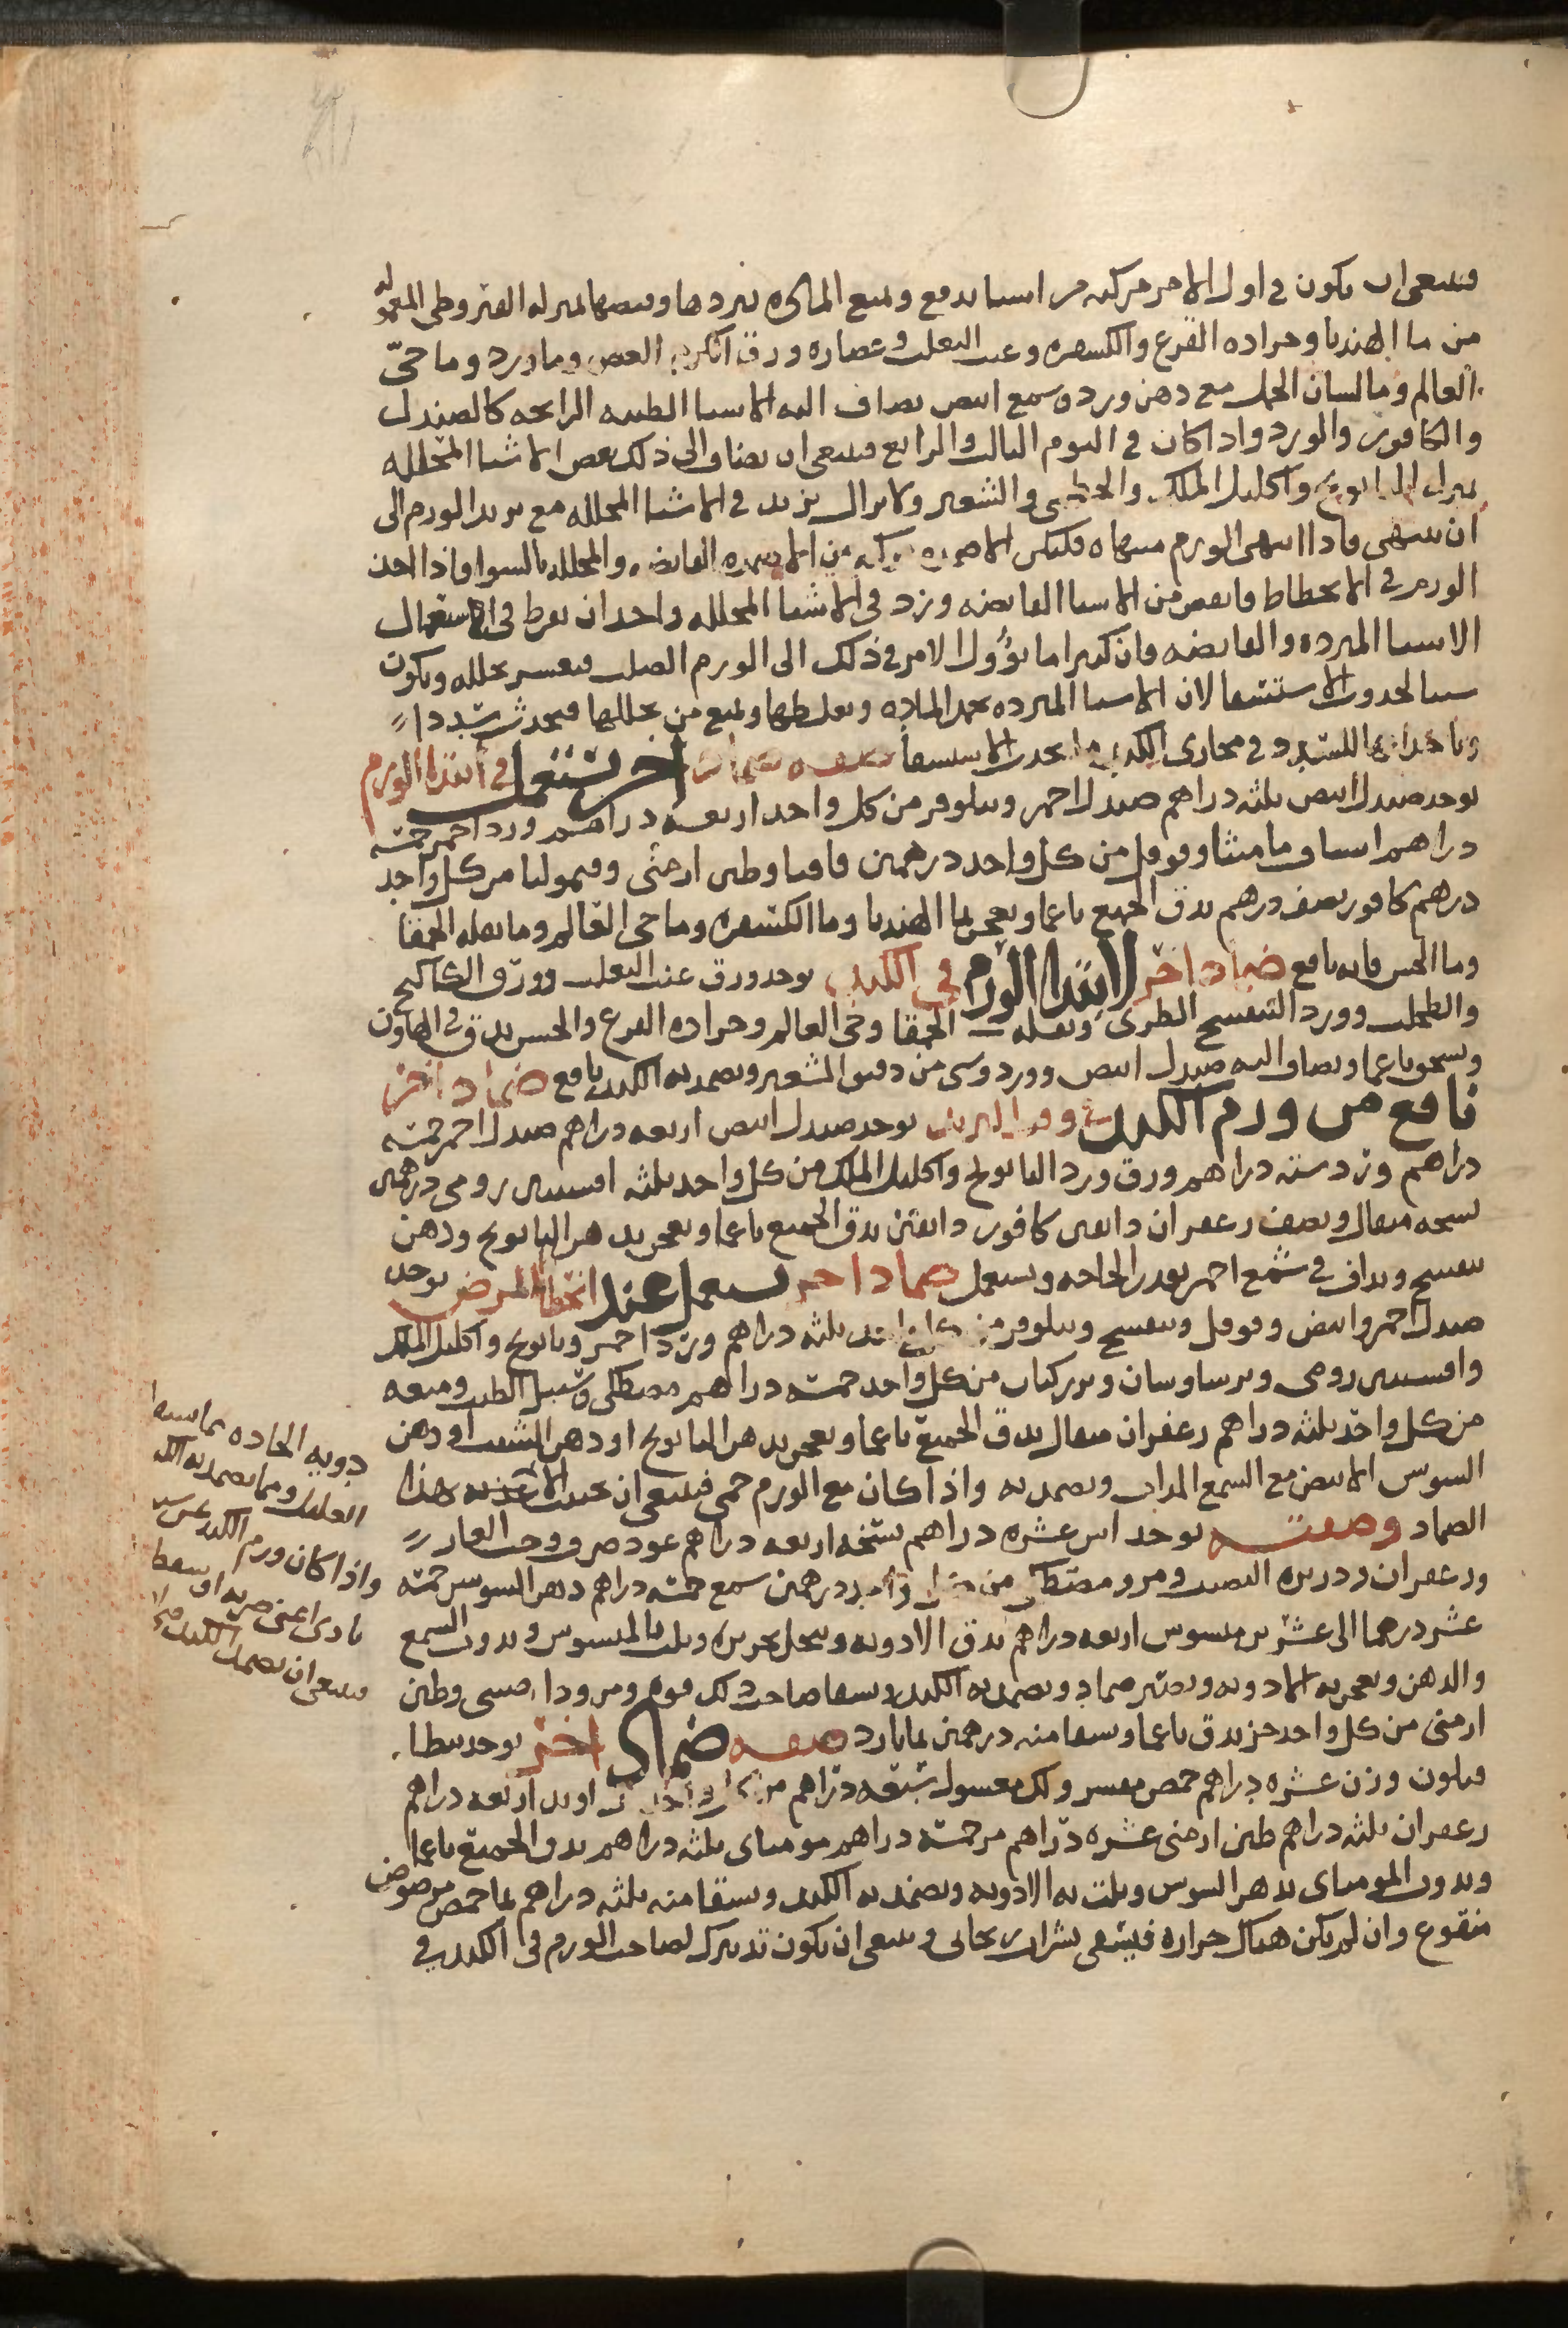 فينبغي ان يكون في اول الامر مركبه من اشيا تدفع وتمنع الماده بتبردها وقبضها بمنزله القيروطي المعموله
من ما الهندبا وجراده القرع والكسفره وعنب الثعلب وعصاره ورق الكرم الغض وماورد وما حيّ
العالم وما لسان الحمل مع دهن ورد وشمع ابيض يضاف اليه الاشيا الطيبه الرايحه كالصندل
والكافور والورد واذا كان في اليوم الثالث والرابع فينبغي ان يضاف الى ذلك بعض الاشيا المحلله
بمنزله البابونج واكليل الملك والخطمي والشعير ولا يزال يزيد في الاشيا المحلله مع تزيد الورم الى
ان ينتهي فاذا انتهى الورم منتهاه فليكن الاضمده مركبه من الادويه القابضه والمحلله بالسوا فاذا اخذ
الورم في الانحطاط فانقص من الاشيا القابضه وزد في الاشيا المحلله واحذر ان تفرط في استعمال
الاشيا المبرده والقابضه فان كثيرا ما يؤول الامر في ذلك الى الورم الصلب فيعسر تحلله ويكون
سببا لحدوث الاستسقا لان الاشيا المبرده تجمد الماده وتغلظها وتمنع من تحللها فيحدث سددا
في مجاري الكبد يحدث الاستسقا صفه ضماد اخر يستعمل في ابتدا الورم
يوخذ صندل ابيض ثلثه دراهم صندل احمر ونيلوفر من كل واحد اربعه دراهم ورد احمر خمسه
دراهم اشياف ماميثا وفوفل من كل واحد درهمين قاقيا وطين ارمني وقيموليا من كل واحد
درهم كافور نصف درهم يدق الجميع ناعما ويعجن بما الهندبا وما الكسفره وما حي العالم وما بقله الحمقا
وما الخس فانه نافع ضماد اخر لابتدا الورم في الكبد يوخذ ورق عنب الثعلب وورق الكاكنج
والطحلب وورد البنفسج الطري وبقله الحمقا وحي العالم وجراده القرع والخس يدق في الهاون
ويسحق ناعما ويضاف اليه صندل ابيض وورد وشي من دقيق الشعير ويضمد به الكبد نافع ضماد اخر
نافع من ورم الكبد في وقت التزيد يوخذ صندل ابيض اربعه دراهم صندل احمر خمسه
دراهم ورد سته دراهم ورق ورد البابونج واكليل الملك من كل واحد ثلثه افسنتين رومي درهمين
نسخه مثقال ونصف زعفران دانقين كافور دانقين يدق الجميع ناعما ويعجن بدهن البابونج ودهن
بنفسج ويداف في شمع احمر بقدر الحاجه ويستعمل ضماد اخر يستعمل عند انحطاط المرض يوخذ
صندل احمر وابيض وفوفل وبنفسج ونيلوفر من كل واحد ثلثه دراهم ورد احمر وبابونج واكليل الملك
وافسنتين رومي وبرسياوشان وبزر كتان من كل واحد خمسه دراهم مصطكي وسنبل الطيب وميعه
من كل واحد ثلثه دراهم زعفران مثقال يدق الجميع ناعما ويعجن بدهن البابونج او دهن الشبت او دهن
السوسن الابيض مع الشمع المذاب ويضمد به واذا كان مع الورم حمى فينبغي ان هذا
الضماد وصفته يوخذ اس عشره دراهم نسخه اربعه دراهم عود صرف وحب الغار
وزعفران وذريره القصب ومر ومصطكي من كل واحد درهمين شمع خمسه دراهم دهن السوسن خمسه
عشر درهما الى عشرين ميسوسن اربعه دراهم تدق الادويه وتنخل بحريره وتلت بالميسوسن ويذوب الشمع
والدهن ويعجن به الادويه ويصير ضماد ويضمد به الكبد ويسقا صاحب ذلك فوه ومر ودارصيني وطين
ارمني من كل واحد جز يدق ناعما ويسقا منه درهمين بما بارد صفه ضماد اخر يوخذ
وزن عشره دراهم حمص مقشر ولك مغسول سبعه دراهم من كل واحد راوند اربعه دراهم
زعفران ثلثه دراهم طين ارمني عشره دراهم مر خمسه دراهم مومياي ثلثه دراهم يدق الجميع ناعما
ويذوب المومياي بدهن السوسن ويلت به الادويه ويضمد به الكبد ويسقا منه ثلثه دراهم بما حمص مرضوض
منقوع وان لم يكن هناك حراره فيسقى بشراب ريحاني وينبغي ان يكون تدبيرك لصاحب الورم في الكبد في
العليل ومما يضمد به الكبد
واذا كان ورم الكبد عن سبب
بادي اعني ضربه او سقطه
فينبغي ان يضمد الكبد